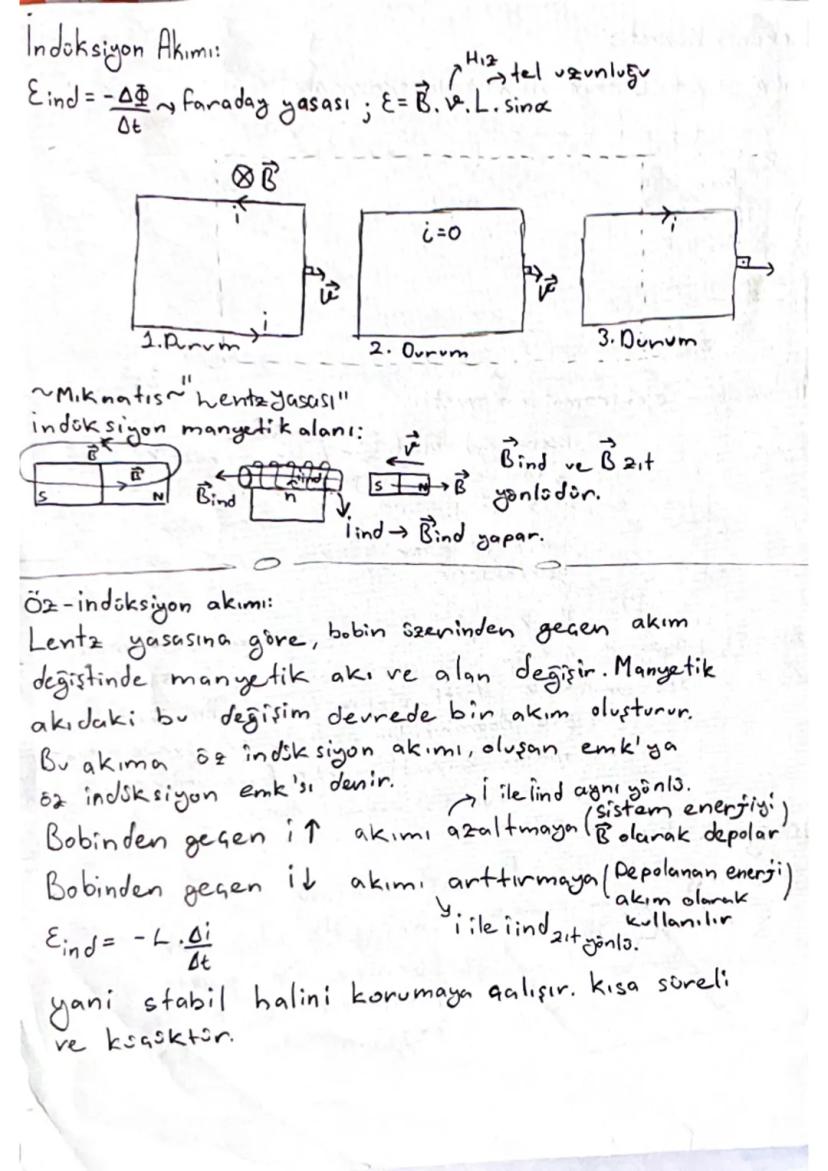 İndüksiyon Akımı:
Hız
tel uzunluğu
Ɛind = -ΔΦ/Δt ~> faraday yasası ; Ɛ = B⃗. ϑ. L. sinα
⊗ B⃗
i
i=0
i
v⃗
v⃗
i
1. Durum
2. Durum
3. Durum
~Mıknatıs~ "Lentz yasası"
indüksiyon manyetik alanı:
B⃗
B⃗
S
N
B⃗ind
iind
n
v⃗
S
N
B⃗
B⃗ind ve B⃗ zıt
yönlüdür.
iind → B⃗ind yapar.
Öz-indüksiyon akımı:
Lentz yasasına göre, bobin üzerinden geçen akım
değiştinde manyetik akı ve alan değişir. Manyetik
akıdaki bu değişim devrede bir akım oluşturur.
Bu akıma öz indüksiyon akımı, oluşan emk'ya
öz indüksiyon emk'sı denir.
i ile iind aynı yönlü.
Bobinden geçen i↑ akımı azaltmaya (sistem enerjiyi
B⃗ olarak depolar)
Bobinden geçen i↓ akımı arttırmaya (Depolanan enerji)
akım olarak
kullanılır
i ile iind zıt yönlü.
Ɛind = -L . Δi/Δt
yani stabil halini korumaya çalışır. kısa süreli
ve küçüktür.